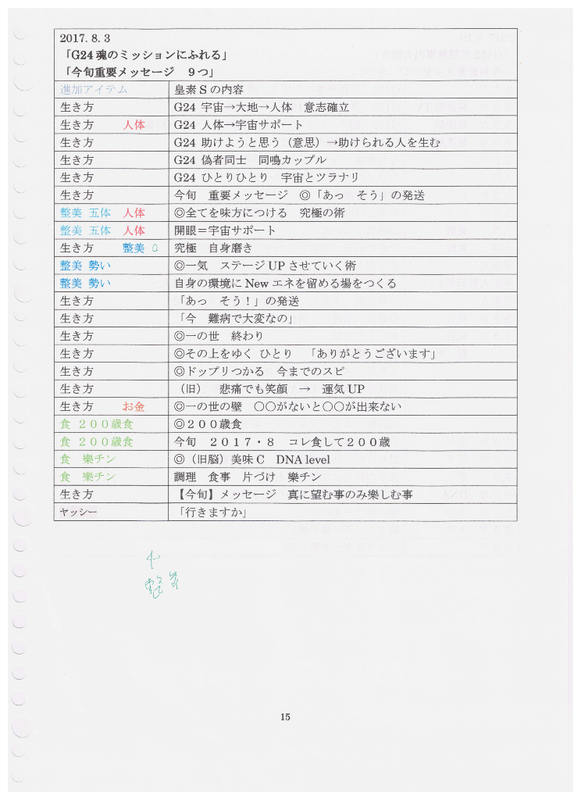 2017. 8. 3
「G24 魂のミッションにふれる」
「今旬重要メッセージ　９つ」
進加アイテム　皇素 S の内容
生き方　G24 宇宙→大地→人体　意志確立
生き方　人体　G24 人体→宇宙サポート
生き方　G24 助けようと思う（意思）→助けられる人を生む
生き方　G24 偽者同士　同鳴カップル
生き方　G24 ひとりひとり　宇宙とツラナリ
生き方　今旬　重要メッセージ　◎「あっ　そう」の発送
整美 五体　人体　◎全てを味方につける　究極の術
整美 五体　人体　開眼＝宇宙サポート
生き方　整美　究極　自身磨き
整美 勢い　◎一気　ステージ UP させていく術
整美 勢い　自身の環境に New エネを留める場をつくる
生き方　「あっ　そう！」の発送
生き方　「今　難病で大変なの」
生き方　◎一の世　終わり
生き方　◎その上をゆく ひとり　「ありがとうございます」
生き方　◎ドップリつかる　今までのスピ
生き方　（旧）　悲痛でも笑顔　→　運気 UP
生き方　お金　◎一の世の壁　〇〇がないと〇〇が出来ない
食 ２００歳食　◎２００歳食
食 ２００歳食　今旬　２０１７・８　コレ食して２００歳
食　樂チン　◎（旧脳）美味 C　DNA level
食　樂チン　調理　食事　片づけ　樂チン
生き方　【今旬】メッセージ　真に望む事のみ楽しむ事
ヤッシー　「行きますか」
15